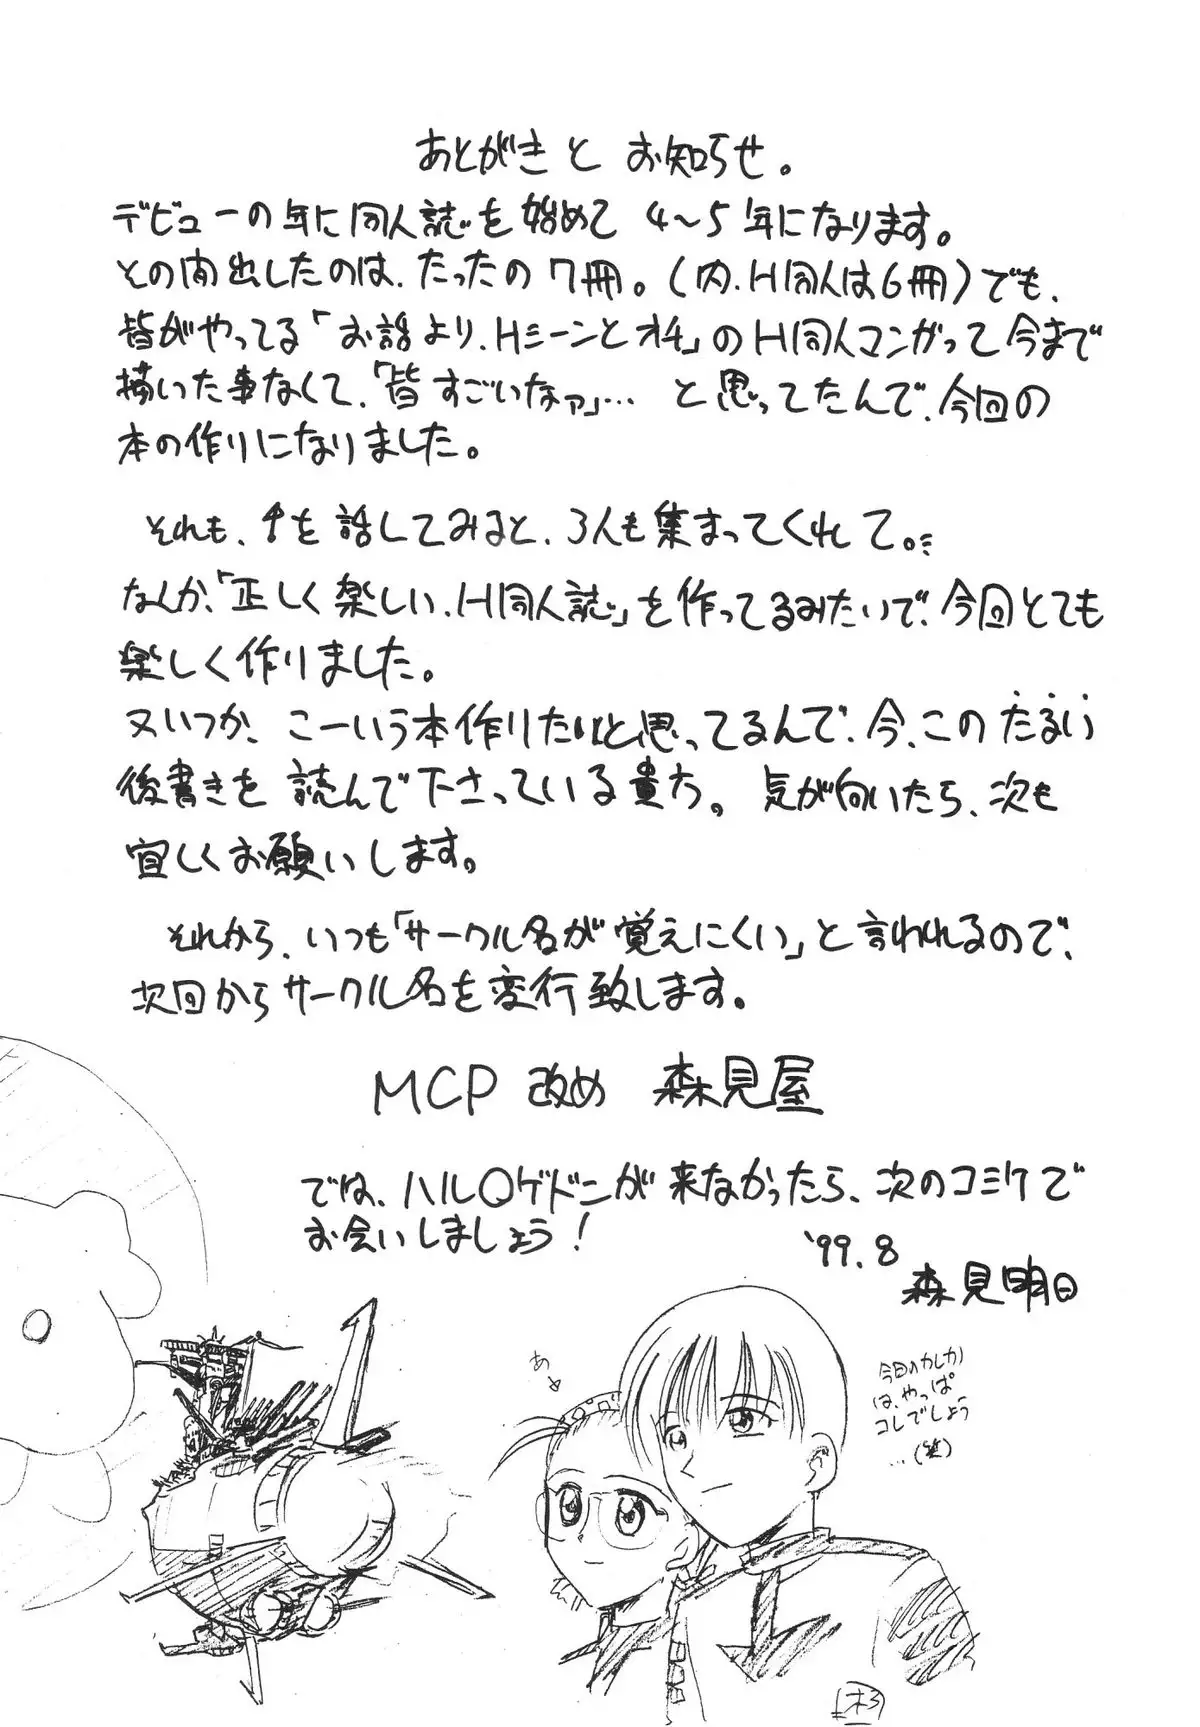 あとがきと お知らせ。
デビューの年に同人誌を始めて 4〜5年になります。
その間出したのは、たったの7冊。(内、H同人は6冊)でも、
皆がやってる「お話より、Hシーンとオチ」のH同人マンガって今まで
描いた事なくて、「皆すごいなァ」… と思ってたんで、今回の
本の作りになりました。
それも、↑を話してみると、3人も集まってくれて。…
なんか、「正しく楽しい、H同人誌」を作ってるみたいで、今回とても
楽しく作りました。
又いつか、こーいう本作りたいと思ってるんで、今、このたるい
後書きを読んで下さっている貴方。気が向いたら、次も
宜しくお願いします。
それから、いつも「サークル名が覚えにくい」と言われるので、
次回からサークル名を変行致します。
MCP 改め 森見屋
では、ハル〇ゲドンが来なかったら、次のコミケで
お会いしましょう!
'99.8
森見明日
あ
今回のカレカ
は、やっぱ
コレでしょう
…(笑)